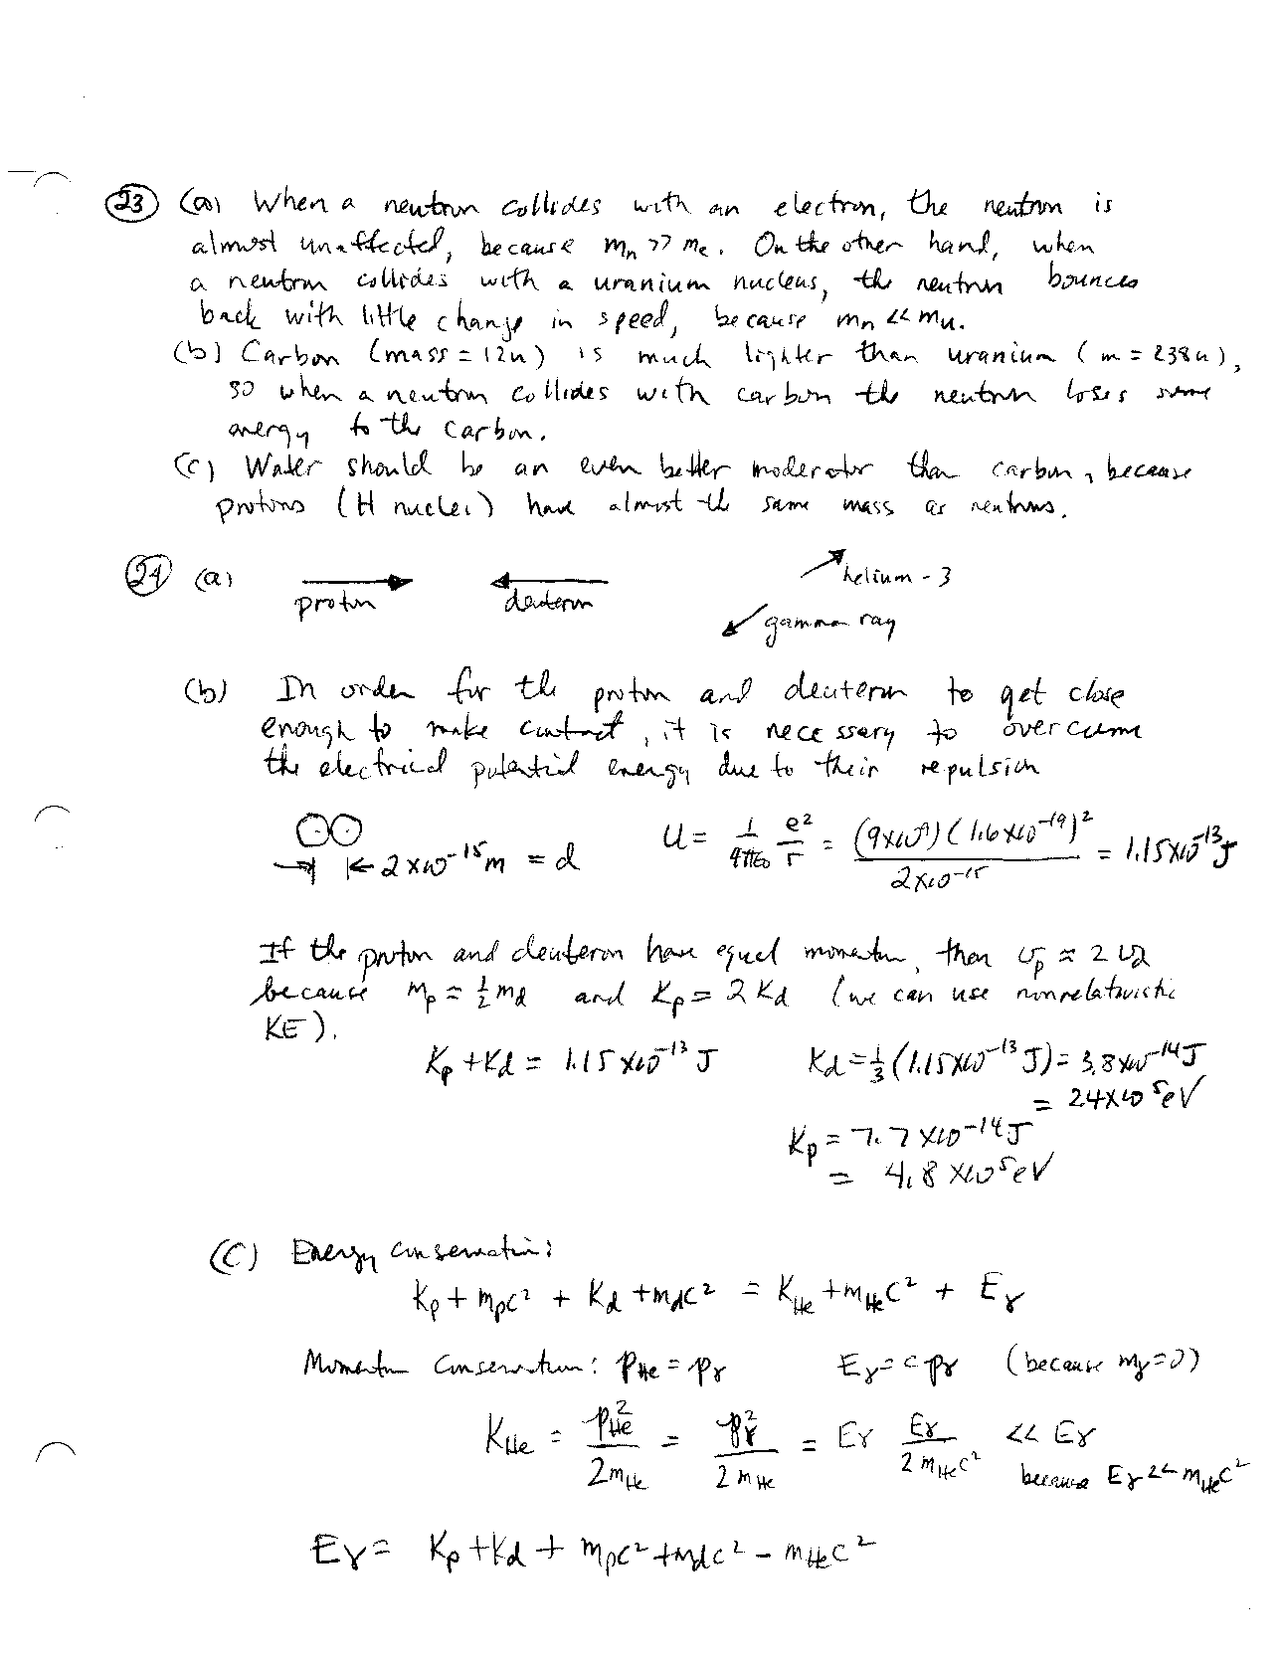 23 (a) When a neutron collides with an electron, the neutron is
almost unaffected, because mₙ >> mₑ. On the other hand, when
a neutron collides with a uranium nucleus, the neutron bounces
back with little change in speed, because mₙ << m_U.
(b) Carbon (mass = 12u) is much lighter than uranium (m = 238u),
so when a neutron collides with carbon the neutron loses some
energy to the carbon.
(c) Water should be an even better moderator than carbon, because
protons (H nuclei) have almost the same mass as neutrons.
24 (a) proton deuteron helium-3
gamma ray
(b) In order for the proton and deuteron to get close
enough to make contact, it is necessary to overcome
the electrical potential energy due to their repulsion
2×10⁻¹⁵ m = d U = 1/(4πε₀) e²/r = (9×10⁹)(1.6×10⁻¹⁹)²/(2×10⁻¹⁵) = 1.15×10⁻¹³ J
If the proton and deuteron have equal momentum, then v_p ≈ 2 v_d
because m_p = ½ m_d and K_p = 2 K_d (we can use nonrelativistic
KE).
K_p + K_d = 1.15×10⁻¹³ J K_d = ⅓(1.15×10⁻¹³ J) = 3.8×10⁻¹⁴ J
= 2.4×10⁵ eV
K_p = 7.7×10⁻¹⁴ J
= 4.8×10⁵ eV
(c) Energy conservation:
K_p + m_p c² + K_d + m_d c² = K_He + m_He c² + E_γ
Momentum conservation: p_He = p_γ E_γ = c p_γ (because m_γ = 0)
K_He = p_He²/(2m_He) = p_γ²/(2m_He) = E_γ E_γ/(2m_He c²) << E_γ
because E_γ << m_He c²
E_γ = K_p + K_d + m_p c² + m_d c² − m_He c²